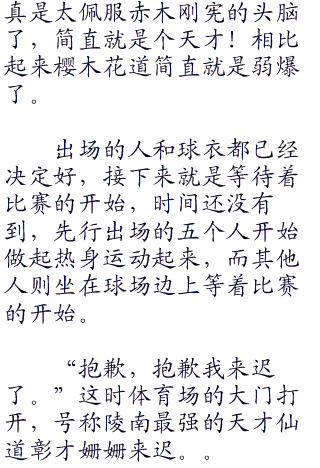 真是太佩服赤木刚宪的头脑
了，简直就是个天才！相比
起来樱木花道简直就是弱爆
了。
出场的人和球衣都已经
决定好，接下来就是等待着
比赛的开始，时间还没有
到，先行出场的五个人开始
做起热身运动起来，而其他
人则坐在球场边上等着比赛
的开始。
“抱歉，抱歉我来迟
了。”这时体育场的大门打
开，号称陵南最强的天才仙
道彰才姗姗来迟。。